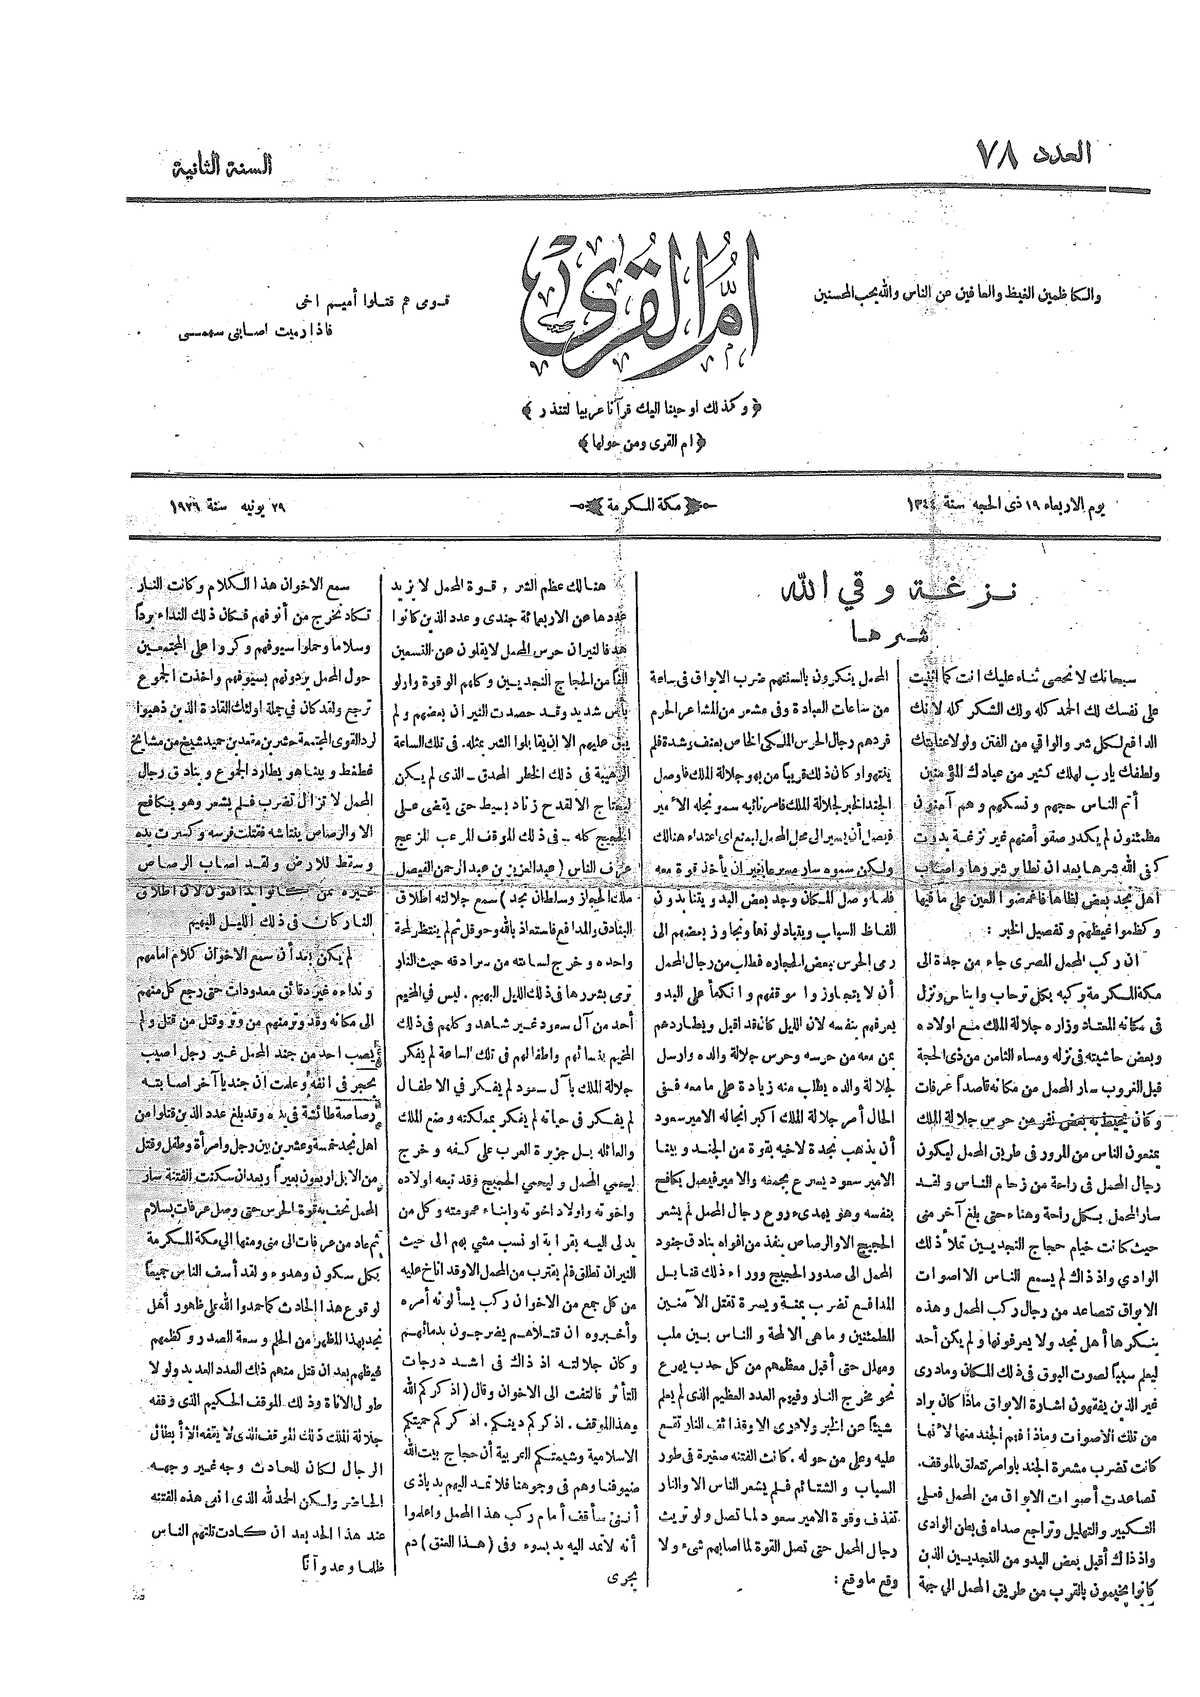 العدد ٧٨
السنة الثانية
والكاظمين الغيظ والعافين عن الناس والله يحب المحسنين
ام القرى
قومي هم قتلوا أميم اخى
فاذا رميت اصابنى سهمى
﴿ وكذلك اوحينا اليك قرآنا عربيا لتنذر ﴾
﴿ ام القرى ومن حولها ﴾
يوم الاربعاء ١٩ ذى الحجه سنة ١٣٤٤
مكة المكرمة
٢٩ يونيه سنة ١٩٢٦
نزغة وقي الله
شرها
سبحانك لا نحصى ثناء عليك انت كما اثنيت
على نفسك لك الحمد كله ولك الشكر كله لانك
الدافع لكل شر والواقي من الفتن ولولا عنايتك
ولطفك يارب لهلك كثير من عبادك المؤمنين
أتم الناس حجهم ونسكهم وهم آمنون
مطمئنون لم يكدر صفو أمنهم غير نزغة بدرت
كفى الله شرها بعد ان تطاير شررها واصاب
أهل نجد بعض لظاها فاغمضوا العين على ما فيها
وكظموا غيظهم وتفصيل الخبر :
ان ركب المحمل المصرى جاء من جدة الى
مكة المكرمة وكبه بكل ترحاب وايناس ونزل
فى مكانه المعتاد وزاره جلالة الملك مع اولاده
وبعض حاشيته فى نزله ومساء الثامن من ذى الحجة
قبل الغروب سار المحمل من مكانه قاصداً عرفات
وكان يحيط به بعض نفر من حرس جلالة الملك
يمنعون الناس من المرور فى طريق المحمل ليكون
رجال المحمل فى راحة من زحام الناس ولقد
سار المحمل بكل راحة وهناء حتى بلغ آخر منى
حيث كانت خيام حجاج النجديين تملأ ذلك
الوادي واذ ذاك لم يسمع الناس الا صوات
الابواق تتصاعد من رجال ركب المحمل وهذه
ينكرها أهل نجد ولا يعرفونها ولم يكن أحد
ليعلم سبباً لصوت البوق فى ذلك المكان ومادرى
غير الذين يفقهون اشارة الابواق ماذا كان يراد
من تلك الاصوات وماذا فهم الجند منها لأنها
كانت تضرب مشعرة الجند باوامر تتعلق بالموقف.
تصاعدت أصوات الابواق من المحمل فعلى
التكبير والتهليل وتراجع صداه فى بطن الوادى
واذ ذاك أقبل بعض البدو من النجديين الذين
كانوا مخيمون بالقرب من طريق المحمل الى جهة
المحمل ينكرون بالسنتهم ضرب الابواق فى ساعة
من ساعات العبادة وفى مشعر من المشاعر الحرم
فردهم رجال الحرس الملكى الخاص بعنف وشدة فلم
ينتهوا وكان ذلك قريباً من بهو جلالة الملك فاوصل
الجند الخبر لجلالة الملك فامر نائبه سمو نجله الأمير
فيصل أن يسير الى محل المحمل ليمنع اى اعتداء هنالك
ولكن سموه سار مسرعا بغير ان يأخذ قوة معه
فلما وصل للمكان وجد بعض البدو يتنابذون
الفاظ السباب ويتبادلونها وتجاوز بعضهم الى
رمى الحرس ببعض الحجاره فطلب من رجال المحمل
أن لا يتجاوزا موقفهم وانكفأ على البدو
يعرفهم بنفسه لان الليل كان قد اقبل ويطاردهم
بمن معه من حرسه وحرس جلالة والده وارسل
لجلالة والده يطلب منه زيادة على ما معه ففى
الحال أمر جلالة الملك اكبر انجاله الامير سعود
أن يذهب نجدة لاخيه بقوة من الجند وبينا
الامير سعود يسرع بجمعه والامير فيصل يكافح
بنفسه وهو يهدىء روع رجال المحمل لم يشعر
الحجيج الا والرصاص ينفذ من افواه بنادق جنود
المحمل الى صدور الحجيج ووراء ذلك قنابل
المدافع تضرب يمنة ويسرة تقتل الآمنين
المطمئنين وما هى الا لمحة والناس بين ملب
ومهلل حتى أقبل معظمهم من كل حدب يهرع
نحو مخرج النار وفيهم العدد العظيم الذى لم يعلم
شيئاً عن الخبر ولا درى الا وقذائف النار تقع
عليه وعلى من حوله . كانت الفتنه صغيرة فى طور
السباب والشتائم فلم يشعر الناس الا والنار
تقذف وقوة الامير سعود لما تصل ولو تريث
رجال المحمل حتى تصل القوة لما اصابهم شىء ولا
وقع ما وقع :
هنالك عظم الشر , قوة المحمل لا يزيد
عددها عن الاربعمائة جندى وعدد الذين كانوا
هدفا لنيران حرس المحمل لا يقلون عن التسعين
الفاً من الحجاج النجديين وكلهم الوقوة واولو
بأس شديد وقد حصدت النيران بعضهم ولم
يبق عليهم الا ان يقابلوا الشر بمثله . فى تلك الساعة
الرهيبة فى ذلك الخطر المحدق – الذى لم يكن
ليحتاج الا لقدح زناد بسيط حتى يقضى على
الحجيج كله – فى ذلك الموقف المرعب المزعج
عرف الناس ( عبدالعزيز بن عبد الرحمن الفيصل
ملك الحجاز وسلطان نجد ) سمع جلالته اطلاق
البنادق والمدافع فاستعاذ بالله وحوقل ثم لم ينتظر لمحة
واحده وخرج لساعته من سرادقه حيث النار
ترى بشررها فى ذلك الليل البهيم . ليس فى المخيم
أحد من آل سعود غير شاهد وكلهم فى ذلك
المخيم بنسائهم واطفالهم فى تلك الساعة لم يفكر
جلالة الملك بآل سعود لم يفكر في الاطفال
لم يفكر فى حياته لم يفكر بمملكته وضع الملك
والعائله بل جزيرة العرب على كفه وخرج
ليحمي المحمل وليحمي الحجيج وقد تبعه اولاده
واخوته واولاد اخوته وابناء عمومته وكل من
يدلى اليه بقرابة او نسب مشى بهم الى حيث
النيران تطلق فلم يقترب من المحمل الا وقد اناخ عليه
من كل جمع من الاخوان ركب يسألونه أمره
وأخبروه ان قتلاهم يضرجون بدمائهم
وكان جلالته اذ ذاك فى اشد درجات
التأثر فالتفت الى الاخوان وقال ( اذكركم الله
وهذا الموقف . اذكركم دينكم . اذكركم حميتكم
الاسلامية وشيمتكم العربية أن حجاج بيت الله
ضيوفنا وهم فى وجوهنا فلا تمد اليهم يد باذى
أننى سأقف أمام ركب هذا المحمل واعلموا
أنه لا تمد اليه يد بسوء وفى ( هذا العنق ) دم
يجرى
سمع الاخوان هذا الكلام وكانت النار
تكاد تخرج من أنوفهم فكان ذلك النداء برداً
وسلاما وحملوا سيوفهم وكروا على المجتمعين
حول المحمل يردونهم بسيوفهم واخذت الجموع
ترجع ولقد كان في جملة اولئك القادة الذين ذهبوا
لرد القوى المجتمعة حشر بن مقعد بن حميد شيخ من مشايخ
غطغط وبينا هو يطارد الجموع وبنادق رجال
المحمل لا تزال تضرب فلم يشعر وهو يكافح
الا والرصاص ينتاشه فقتلت فرسه وكسرت يده
وسقط للارض ولقد اصاب الرصاص
غيره ممن كانوا يدافعون لان اطلاق
النار كان فى ذلك الليل البهيم
لم يكن بعد أن سمع الاخوان كلام امامهم
ونداءه غير دقائق معدودات حتى رجع كل منهم
الى مكانه وقد وتر منهم من وتر وقتل من قتل ولم
يصب احد من جند المحمل غير رجل اصيب
بحجر فى انفه وعلمت ان جنديا آخر اصابته
رصاصة طائشة فى يده وقد بلغ عدد الذين قتلوا من
اهل نجد خمسة وعشرين بين رجل وامرأة وطفل وقتل
من الابل اربعون بعيراً وبعد ان سكنت الفتنة سار
المحمل تحف به قوة الحرس حتى وصل عرفات بسلام
ثم عاد من عرفات الى منى ومنها الي مكة المكرمة
بكل سكون وهدوء ولقد أسف الناس جميعاً
لوقوع هذا الحادث كما حمدوا الله على ظهور أهل
نجد بهذا المظهر من الحلم وسعة الصدر وكظمهم
غيظهم بعد ان قتل منهم ذلك العدد العديد ولولا
طول الاناة وذلك الموقف الحكيم الذى وقفه
جلالة الملك ذلك الموقف الذى لا يقفه الا أبطال
الرجال لكان للحادث وجه غير وجهه
الحاضر ولكن الحمد لله الذى انهى هذه الفتنه
عند هذا الحد بعد ان كادت تلتهم الناس
ظلما وعدوآناً